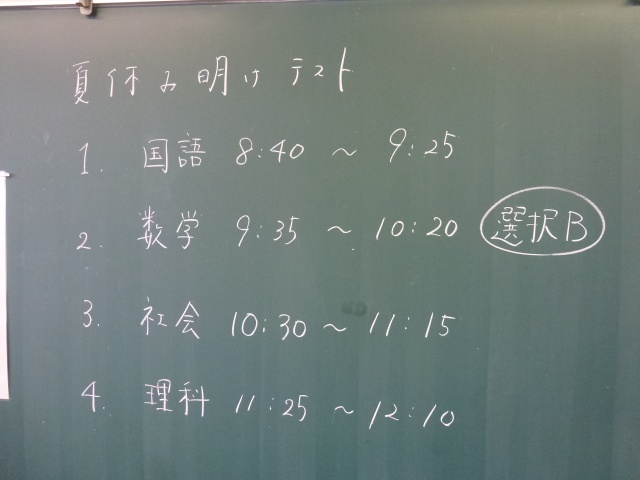 夏休み明けテスト
1. 国語 8:40 ~ 9:25
2. 数学 9:35 ~ 10:20 選択B
3. 社会 10:30 ~ 11:15
4. 理科 11:25 ~ 12:10